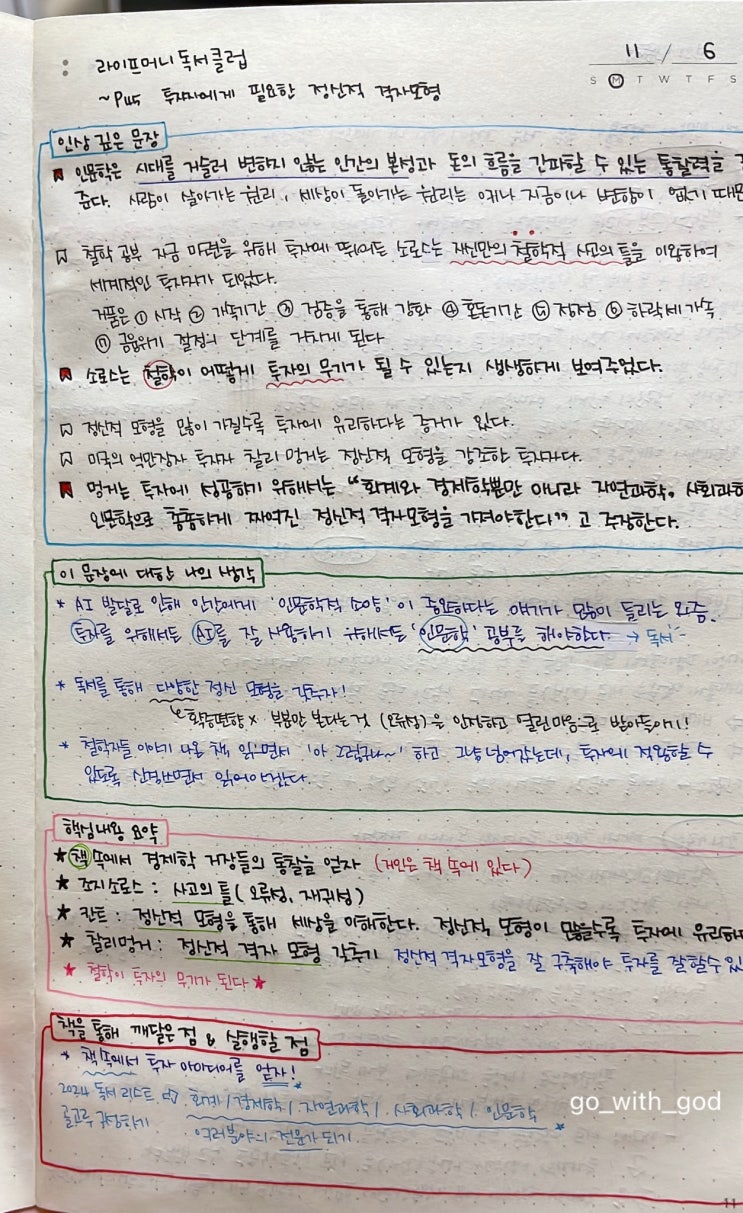 라이프머니 독서클럽
11 / 6
S M T W T F S
~P45 투자자에게 필요한 정신적 격자모형
인상 깊은 문장
인문학은 시대를 거슬러 변하지 않는 인간의 본성과 돈의 흐름을 간파할 수 있는 통찰력을
준다. 사람이 살아가는 원리, 세상이 돌아가는 원리는 예나 지금이나 변함이 없기 때문
철학 공부 자금 마련을 위해 투자에 뛰어든 소로스는 자신만의 철학적 사고의 틀을 이용하여
세계적인 투자자가 되었다.
거품은 ① 시작 ② 가속기간 ③ 검증을 통해 강화 ④ 혼돈기간 ⑤ 정점 ⑥ 하락세 가속
⑦ 금융위기 절정의 단계를 거치게 된다
소로스는 철학이 어떻게 투자의 무기가 될 수 있는지 생생하게 보여주었다.
정신적 모형을 많이 가질수록 투자에 유리하다는 증거가 있다.
미국의 억만장자 투자자 찰리 멍거는 정신적 모형을 강조한 투자자다.
멍거는 투자에 성공하기 위해서는 "회계와 경제학뿐만 아니라 자연과학, 사회과학
인문학으로 촘촘하게 짜여진 정신적 격자모형을 가져야한다" 고 주장한다.
이 문장에 대한 나의 생각
* AI 발달로 인해 인간에게 '인문학적 소양' 이 중요하다는 얘기가 많이 들리는 요즘.
투자를 위해서든 AI를 잘 사용하기 위해서든 '인문학' 공부를 해야한다 → 독서
* 독서를 통해 다양한 정신 모형을 갖추자!
확증편향 × 부분만 본다는 것 (오류성)을 인지하고 열린마음으로 받아들이기!
* 철학자들 이야기 나온 책 읽으면서 '아 그렇구나~' 하고 그냥 넘어갔는데, 투자에 적용할 수
있도록 신경쓰면서 읽어야겠다.
핵심내용 요약
★ 책 속에서 경제학 거장들의 통찰을 얻자 (거인은 책 속에 있다)
★ 조지소로스 : 사고의 틀 (오류성, 재귀성)
★ 칸트 : 정신적 모형을 통해 세상을 이해한다. 정신적 모형이 많을수록 투자에 유리하
★ 찰리멍거 : 정신적 격자 모형 갖추기 정신적 격자모형을 잘 구축해야 투자를 잘할수 있
★ 철학이 투자의 무기가 된다 ★
책을 통해 깨달은 점 & 실행할 점
* 책 속에서 투자 아이디어를 얻자!
2024 독서 리스트 회계 / 경제학 / 자연과학 / 사회과학 / 인문학
골고루 여러분야의 전문가 되기
go_with_god
11